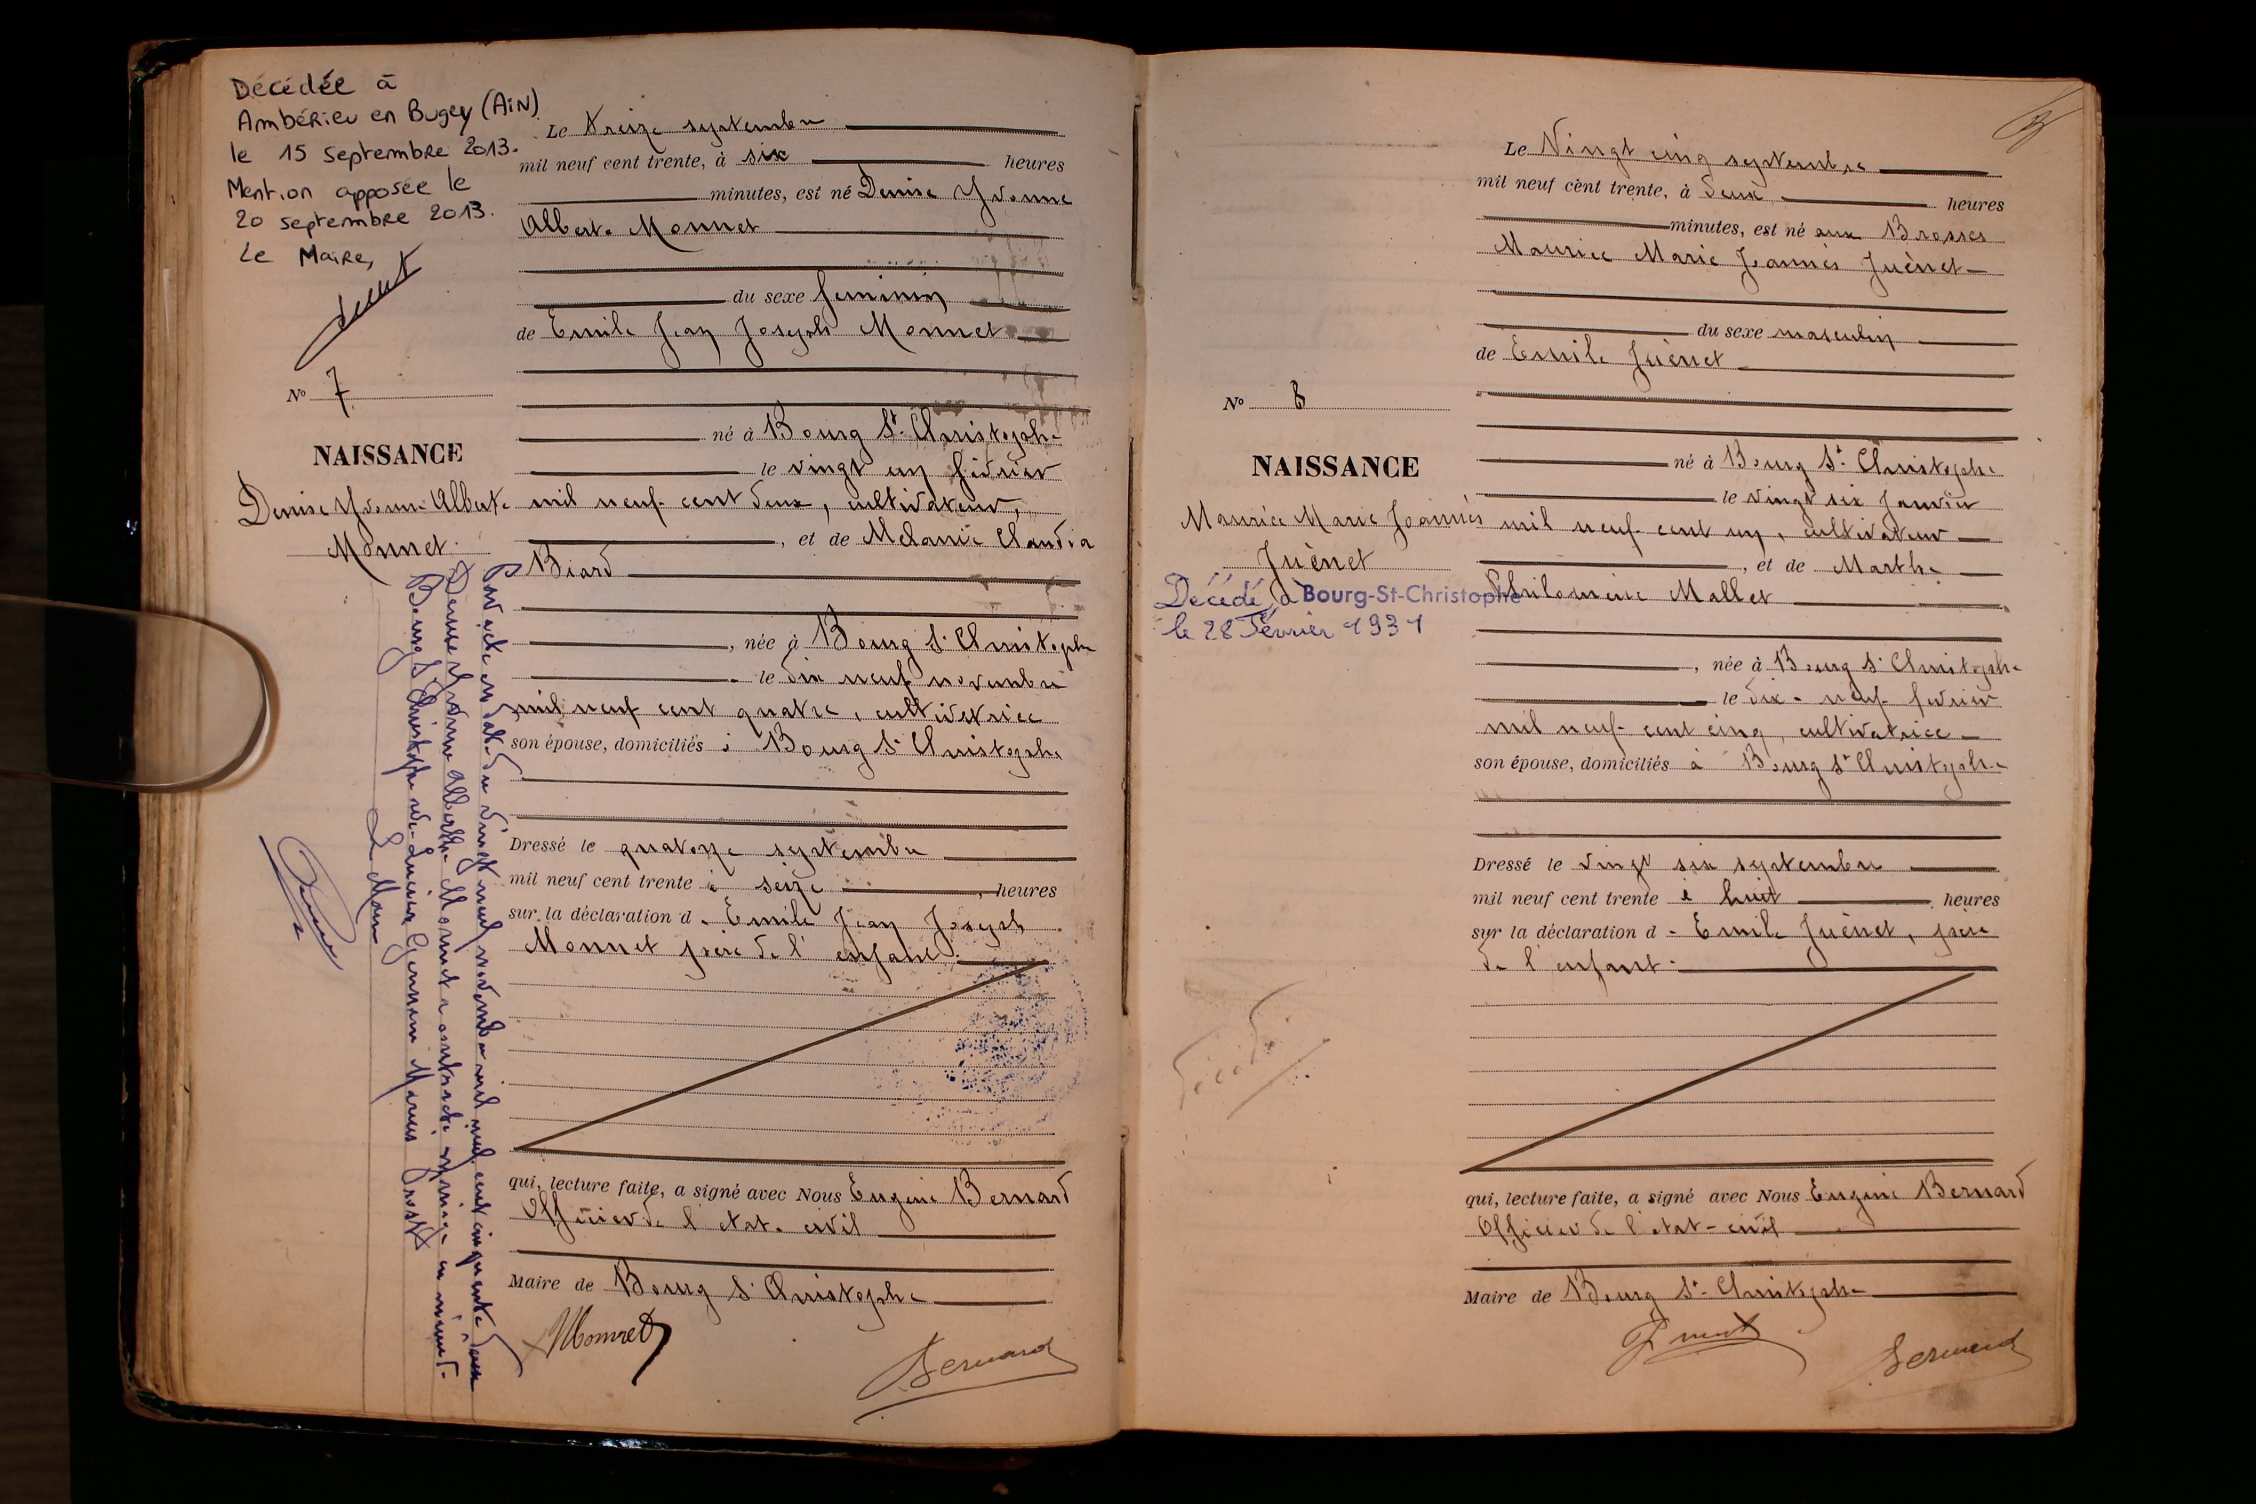 Décédée à
Ambérieu en Bugey (Ain)
le 15 septembre 2013.
Mention apposée le
20 septembre 2013.
Le Maire,
No 7
NAISSANCE
Denise Yvonne Alberte
Monnet
Le treize septembre
mil neuf cent trente, à six heures
minutes, est né Denise Yvonne
Alberte Monnet
du sexe feminin
de Emile Jean Joseph Monnet
né à Bourg St Christophe
le vingt un fevrier
mil neuf cent deux, cultivateur,
, et de Melanie Claudia
Biard
, née à Bourg St Christophe
le dix neuf novembre
mil neuf cent quatre, cultivatrice
son épouse, domiciliés à Bourg St Christophe
Dressé le quatorze septembre
mil neuf cent trente à seize heures
sur la déclaration d Emile Jean Joseph
Monnet père de l'enfant.
qui, lecture faite, a signé avec Nous Eugène Bernard
Officier de l'etat-civil
Maire de Bourg St Christophe
Monnet
Bernard
Par acte en date du vingt neuf novembre mil neuf cent cinquante deux
Denise Yvonne Alberte Monnet a contracté mariage en mairie de
Bourg St Christophe avec Lucien Germain Marius
Le Maire
No 8
NAISSANCE
Maurice Marie Joannès
Juènet
Décédé à Bourg-St-Christophe
le 28 Février 1931
Décédé
Le Vingt cinq septembre
mil neuf cent trente, à deux heures
minutes, est né aux Brosses
Maurice Marie Joannès Juènet
du sexe masculin
de Emile Juènet
né à Bourg St Christophe
le vingt six Janvier
mil neuf cent un, cultivateur
, et de Marthe
Philomène Mallet
, née à Bourg St Christophe
le dix-neuf fevrier
mil neuf cent cinq, cultivatrice
son épouse, domiciliés à Bourg St Christophe
Dressé le vingt six septembre
mil neuf cent trente à huit heures
sur la déclaration d Emile Juènet, père
de l'enfant.
qui, lecture faite, a signé avec Nous Eugène Bernard
Officier de l'etat-civil
Maire de Bourg St Christophe
Bernard